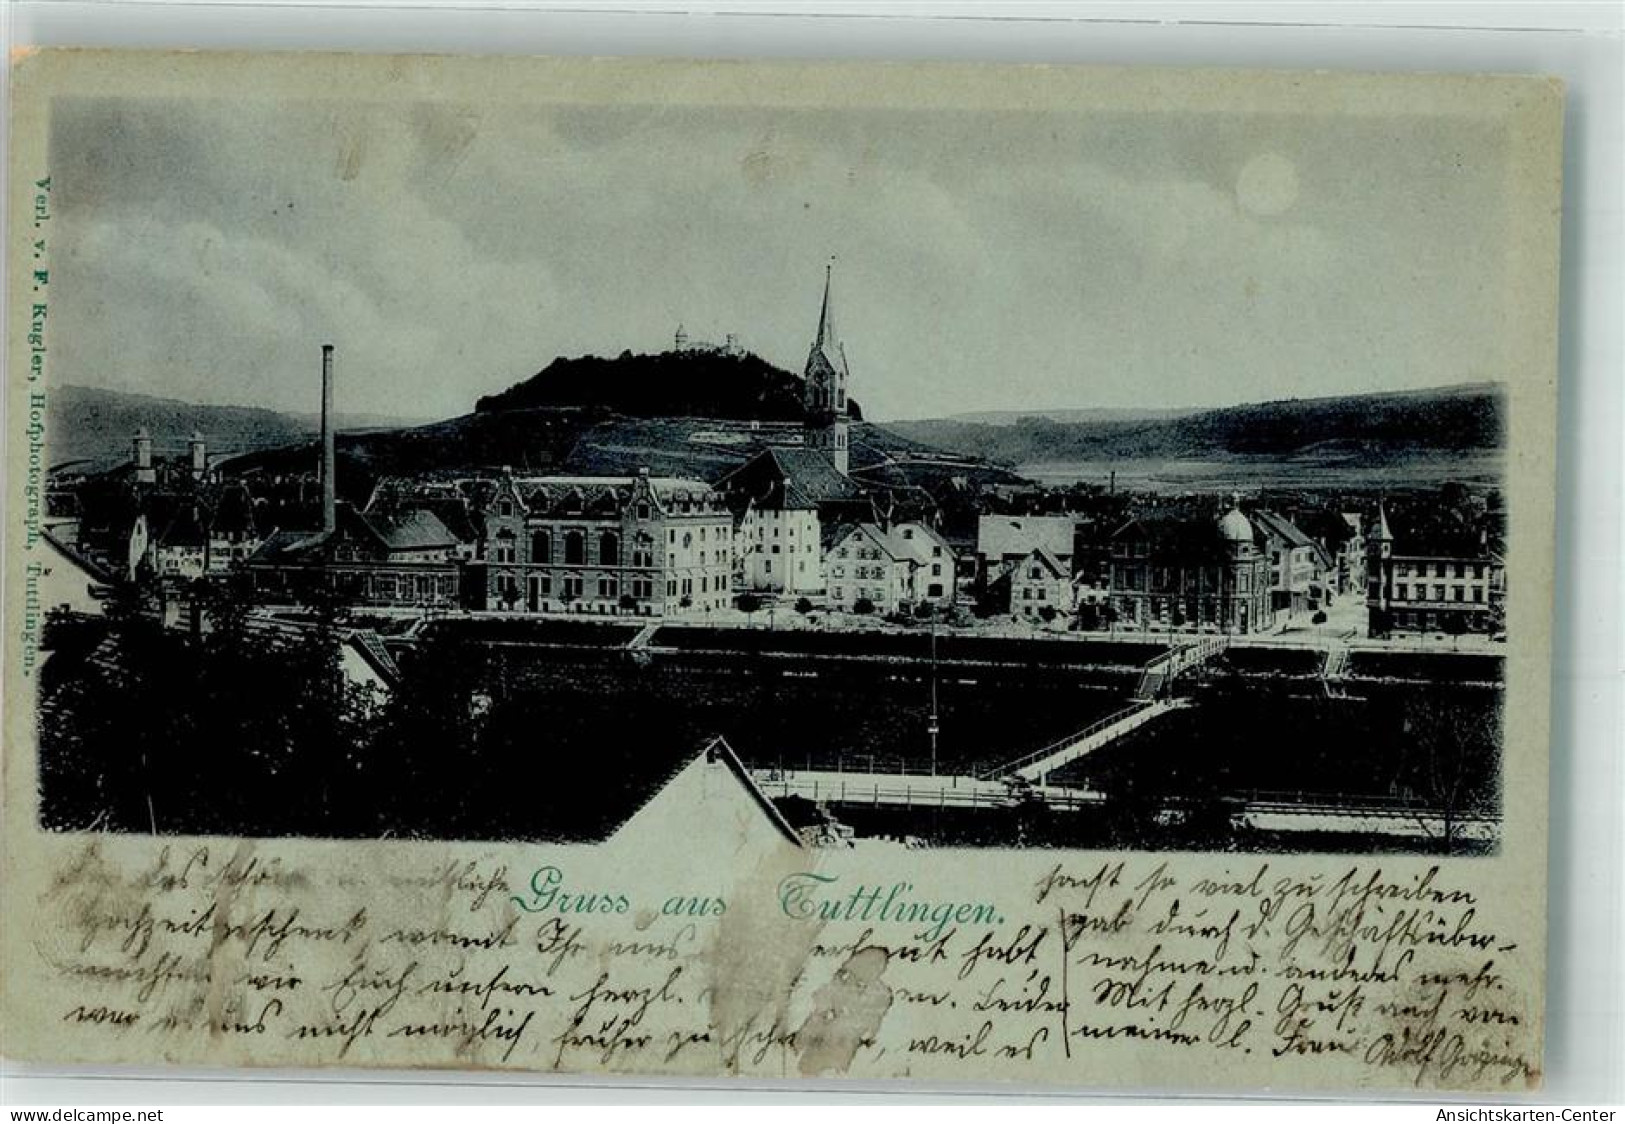 Verl. v. F. Kugler, Hofphotograph, Tuttlingen.
Gruss aus Tuttlingen.
das schöne nützliche
Hochzeitsgeschenk, womit Ihr uns erfreut habt,
möchten wir Euch unsern herzl. Leider
war es uns nicht möglich, früher zu schreiben, weil es
sonst so viel zu schreiben
gab durch d. Geschäftsüber-
nahme u. anderes mehr.
Mit herzl. Gruß auch von
meiner l. Frau Adolf
Ansichtskarten-Center